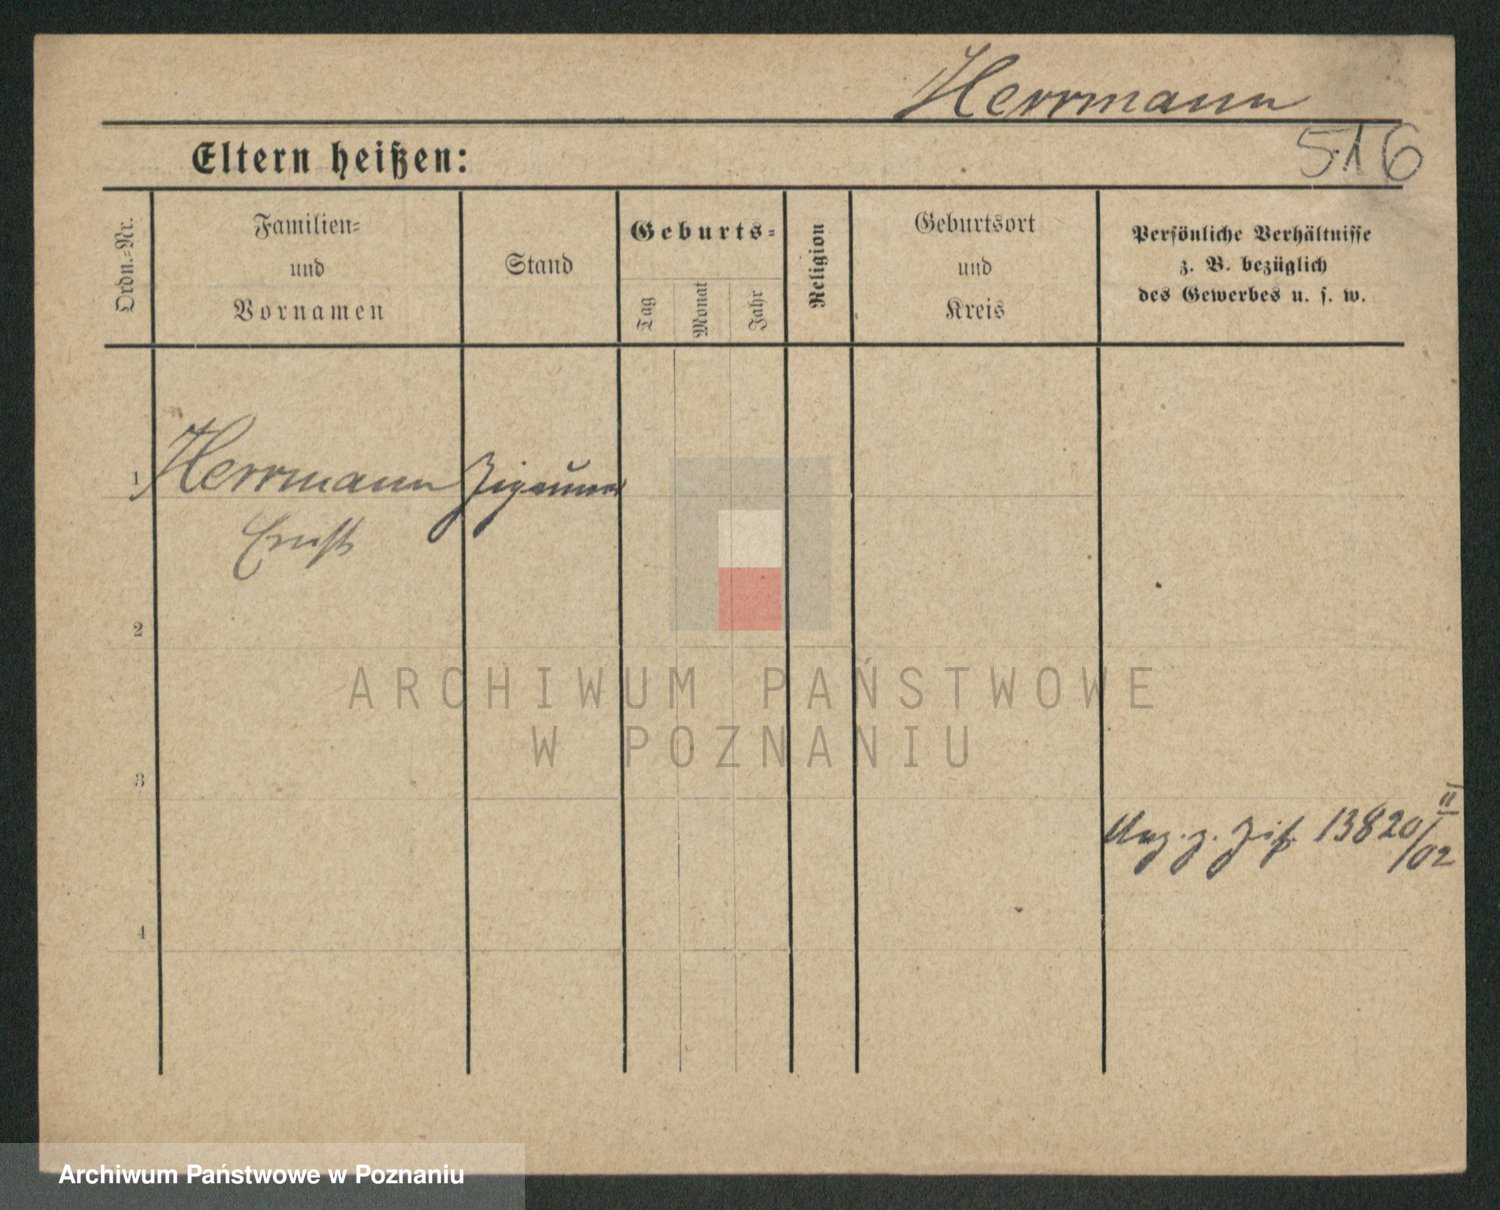 Herrmann
516
Eltern heißen:
Ordn.-Nr.
Familien-
und
Vornamen
Stand
Geburts-
Tag
Monat
Jahr
Religion
Geburtsort
und
Kreis
Persönliche Verhältnisse
z. B. bezüglich
des Gewerbes u. s. w.
1
Herrmann
Zigeuner
Ernst
2
3
13820/02 II
4
ARCHIWUM PAŃSTWOWE
W POZNANIU
Archiwum Państwowe w Poznaniu